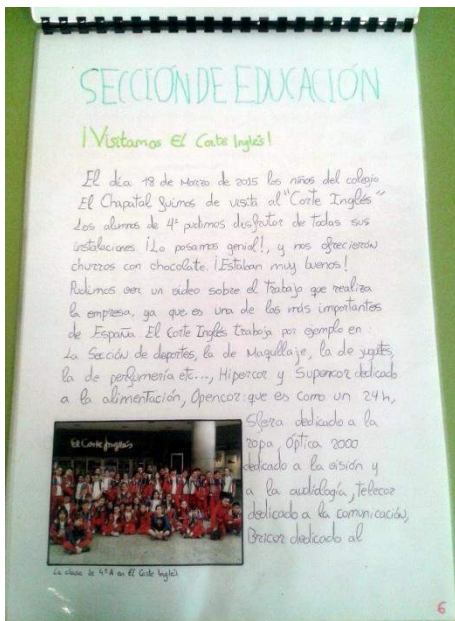 SECCIÓN DE EDUCACIÓN
¡Visitamos El Corte Inglés!
El día 18 de Marzo de 2015 los niños del colegio
El Chapatal fuimos de visita al "Corte Inglés"
Los alumnos de 4º pudimos disfrutar de todas sus
instalaciones. ¡Lo pasamos genial!, y nos ofrecieron
churros con chocolate. ¡Estaban muy buenos!
Pudimos ver un video sobre el trabajo que realiza
la empresa, ya que es una de las más importantes
de España. El Corte Inglés trabaja por ejemplo en:
La Sección de deportes, la de Maquillaje, la de juguetes,
la de perfumería etc..., Hipercor y Supercor dedicado
a la alimentación, Opencor: que es como un 24h,
Sfera dedicado a la
ropa, Óptica 2000
dedicado a la visión y
a la audiología, Telecor
dedicado a la comunicación,
Bricor dedicado al
El Corte Inglés
La clase de 4º A en El Corte Inglés
6